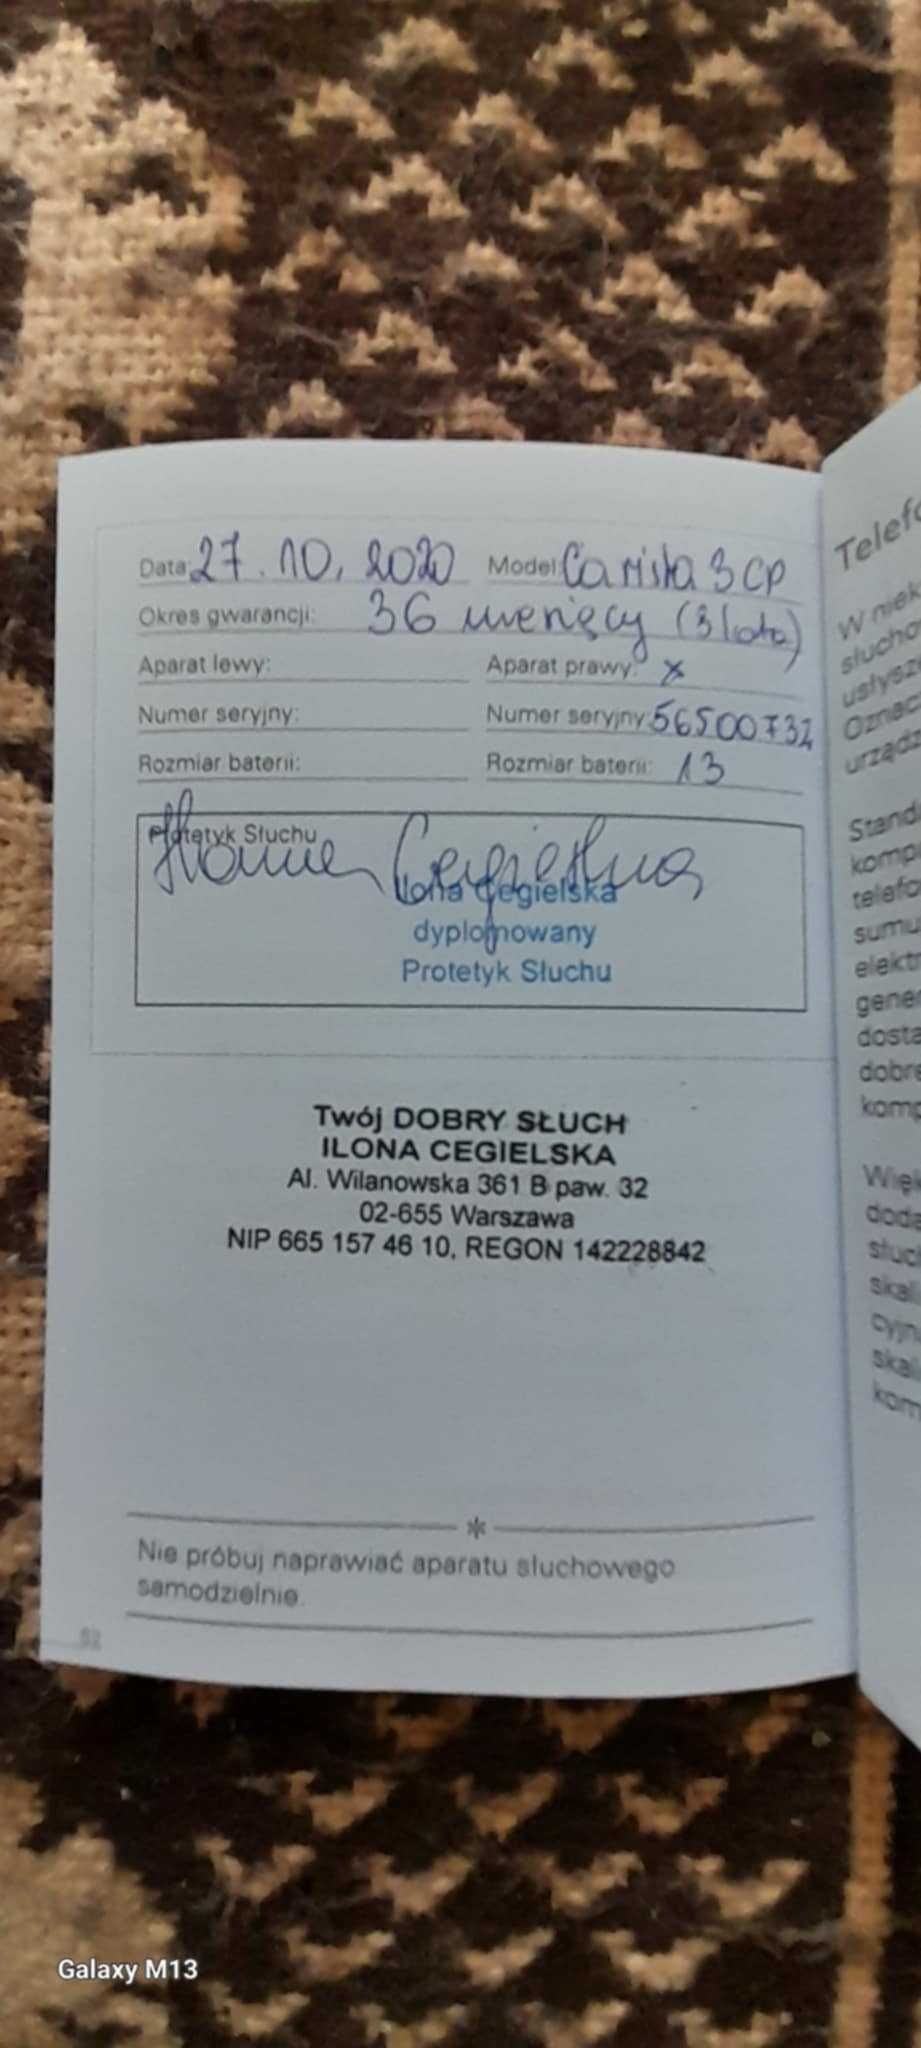 Data: 27.10.2020 Model: Carista 3 CP
Okres gwarancji: 36 miesięcy (3 lata)
Aparat lewy: Aparat prawy: x
Numer seryjny: Numer seryjny: 56500732
Rozmiar baterii: Rozmiar baterii: 13
Protetyk Słuchu
Ilona Cegielska
Ilona Cegielska
dyplomowany
Protetyk Słuchu
Twój DOBRY SŁUCH
ILONA CEGIELSKA
Al. Wilanowska 361 B paw. 32
02-655 Warszawa
NIP 665 157 46 10, REGON 142228842
*
Nie próbuj naprawiać aparatu słuchowego
samodzielnie.
52
Telefo
W niek
słucho
usłysz
Oznac
urządz
Stand
komp
telefo
sumu
elektr
gene
dosta
dobre
komp
Więk
doda
słuc
skal
cyjn
skal
kom
Galaxy M13